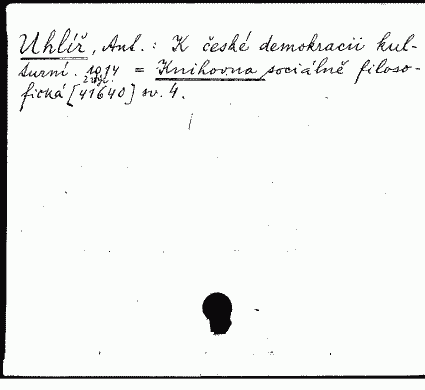 Uhlíř, Ant.: K české demokracii kul-
turní. 1914 = Knihovna sociálně filoso-
fická [41640] sv. 4.